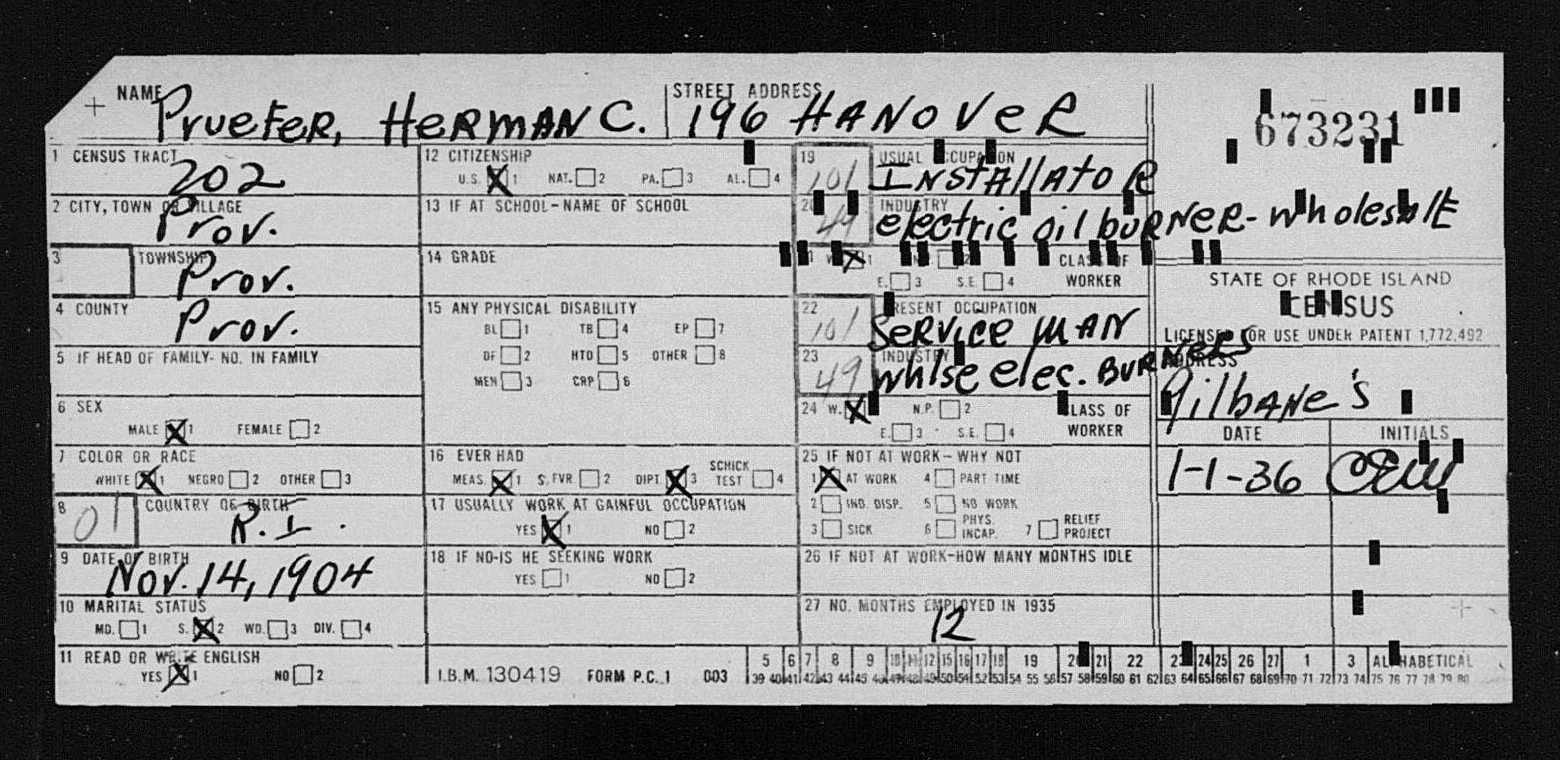 NAME Pruefer, Herman C. STREET ADDRESS 196 HANOVER
673231
1 CENSUS TRACT 202
2 CITY, TOWN OR VILLAGE Prov.
3 TOWNSHIP Prov.
4 COUNTY Prov.
5 IF HEAD OF FAMILY- NO. IN FAMILY
6 SEX
MALE X 1 FEMALE 2
7 COLOR OR RACE
WHITE X 1 NEGRO 2 OTHER 3
8 01 COUNTRY OF BIRTH R.I.
9 DATE OF BIRTH Nov. 14, 1904
10 MARITAL STATUS
MD. 1 S. X 2 WD. 3 DIV. 4
11 READ OR WRITE ENGLISH
YES X 1 NO 2
12 CITIZENSHIP
U.S. X 1 NAT. 2 PA. 3 AL. 4
13 IF AT SCHOOL-NAME OF SCHOOL
14 GRADE
15 ANY PHYSICAL DISABILITY
BL 1 TB 4 EP 7
DF 2 HTD 5 OTHER 8
MEN 3 CRP 6
16 EVER HAD
MEAS. X 1 S. FVR. 2 DIPT. X 3 SCHICK TEST 4
17 USUALLY WORK AT GAINFUL OCCUPATION
YES X 1 NO 2
18 IF NO-IS HE SEEKING WORK
YES 1 NO 2
I.B.M. 130419 FORM P.C.1 003
19 101 USUAL OCCUPATION Installator
20 49 INDUSTRY electric oil burner-wholesale
21 W. X 1 N.P. 2 CLASS OF
E. 3 S.E. 4 WORKER
22 101 PRESENT OCCUPATION Service man
23 49 INDUSTRY whlse elec. Burners
24 W. X N.P. 2 CLASS OF
E. 3 S.E. 4 WORKER
25 IF NOT AT WORK-WHY NOT
1 X AT WORK 4 PART TIME
2 IND. DISP. 5 NO WORK
3 SICK 6 PHYS. INCAP. 7 RELIEF PROJECT
26 IF NOT AT WORK-HOW MANY MONTHS IDLE
27 NO. MONTHS EMPLOYED IN 1935
12
STATE OF RHODE ISLAND
CENSUS
LICENSED FOR USE UNDER PATENT 1,772,492
ADDRESS
Gilbane's
DATE INITIALS
1-1-36
5 6 7 8 9 10 11 12 15 16 17 18 19 20 21 22 23 24 25 26 27 1 3 ALPHABETICAL
39 40 41 42 43 44 45 46 47 48 49 50 51 52 53 54 55 56 57 58 59 60 61 62 63 64 65 66 67 68 69 70 71 72 73 74 75 76 77 78 79 80